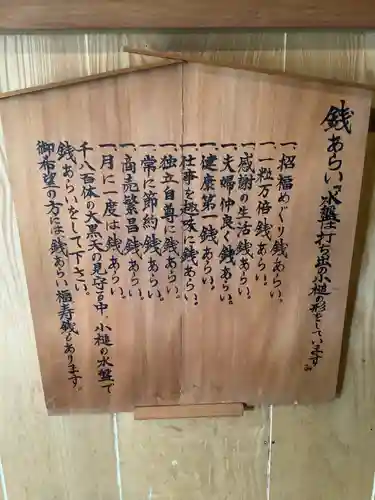 銭あらい水盤は打ち出の小槌の形をしています
一、招福めぐり銭あらい。
一、一粒万倍銭あらい。
一、感謝の生活銭あらい。
一、夫婦仲良く銭あらい。
一、健康第一銭あらい。
一、仕事を趣味に銭あらい。
一、独立自尊に銭あらい。
一、常に節約銭あらい。
一、商売繁昌銭あらい。
一、月に一度は銭あらい。
千八百体の大黒天の見守る中、小槌の水盤で
銭あらいをして下さい。
御希望の方には銭あらい福寿銭もあります。